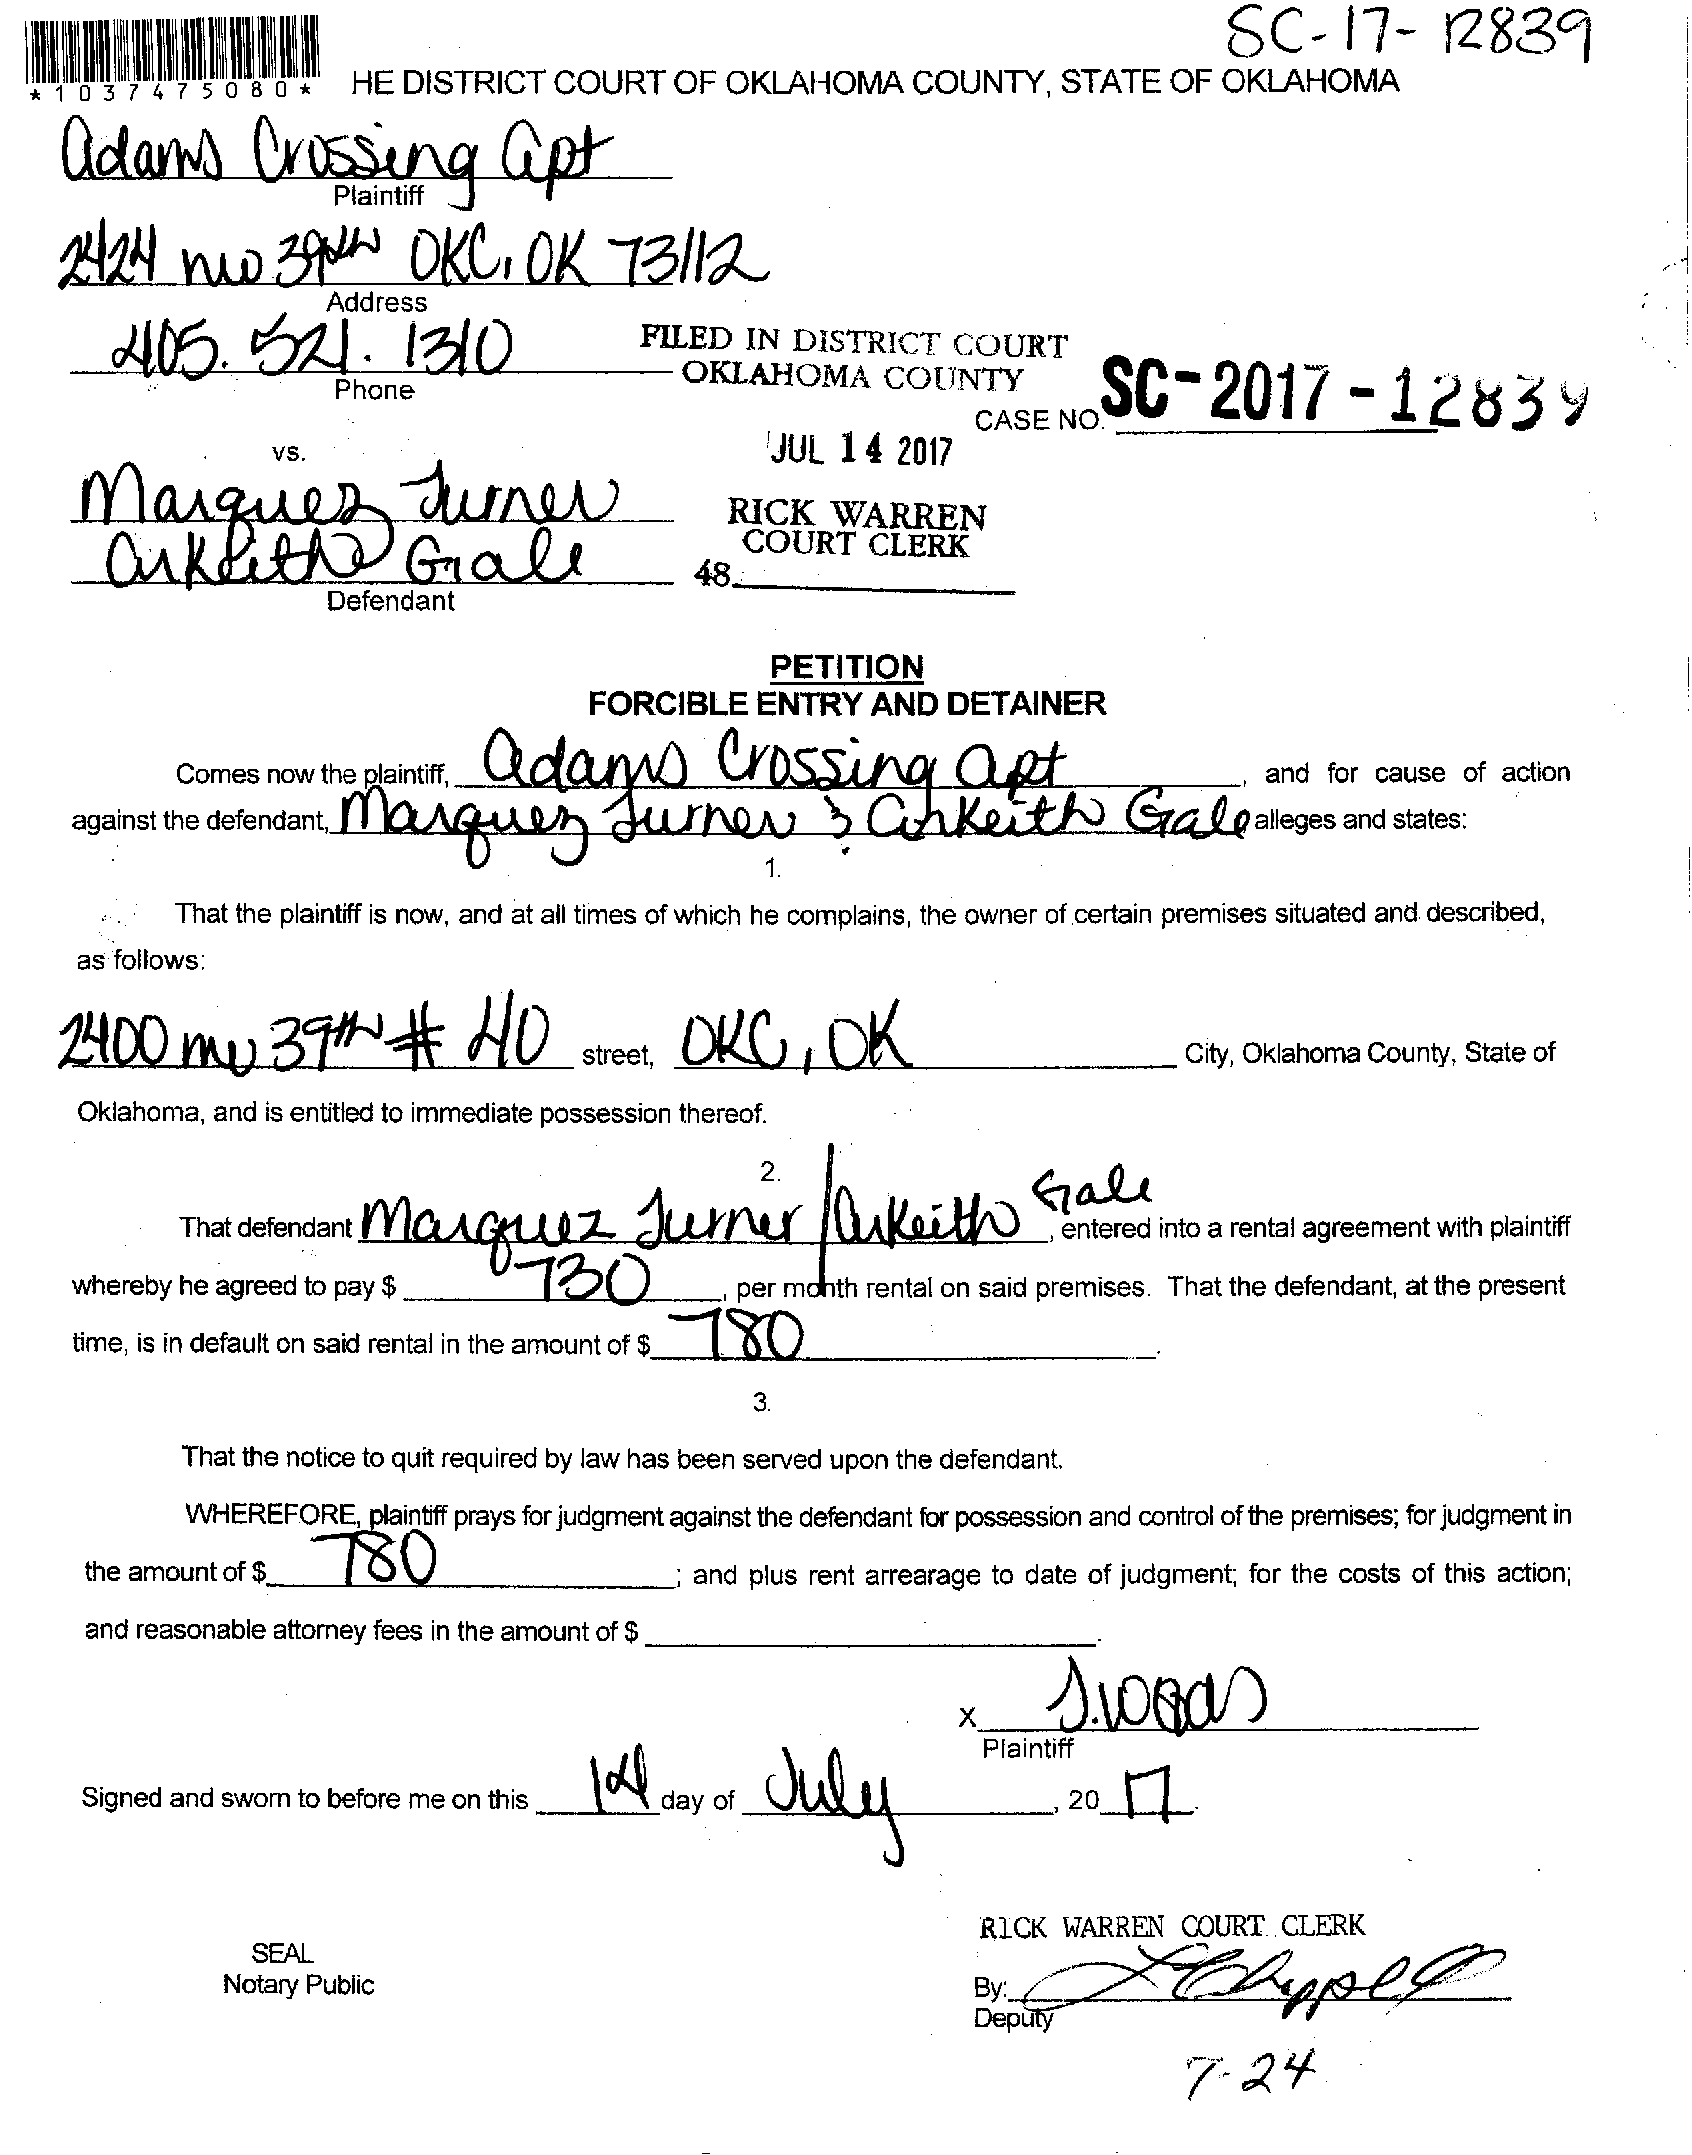 SC-17-12839
*1037475080*
HE DISTRICT COURT OF OKLAHOMA COUNTY, STATE OF OKLAHOMA
Adams Crossing Apt
Plaintiff
2424 NW 39th OKC, OK 73112
Address
405. 521. 1310
Phone
FILED IN DISTRICT COURT
OKLAHOMA COUNTY
CASE NO. SC-2017-12839
JUL 14 2017
vs.
Marquez Turner
RICK WARREN
COURT CLERK
Arkeith Gale
48
Defendant
PETITION
FORCIBLE ENTRY AND DETAINER
Comes now the plaintiff, Adams Crossing Apt, and for cause of action
against the defendant, Marquez Turner & Arkeith Gale alleges and states:
1.
That the plaintiff is now, and at all times of which he complains, the owner of certain premises situated and described,
as follows:
2400 NW 39th # 40 street, OKC, OK City, Oklahoma County, State of
Oklahoma, and is entitled to immediate possession thereof.
2.
That defendant Marquez Turner / Arkeith Gale, entered into a rental agreement with plaintiff
whereby he agreed to pay $ 730, per month rental on said premises. That the defendant, at the present
time, is in default on said rental in the amount of $ 780.
3.
That the notice to quit required by law has been served upon the defendant.
WHEREFORE, plaintiff prays for judgment against the defendant for possession and control of the premises; for judgment in
the amount of $ 780; and plus rent arrearage to date of judgment; for the costs of this action;
and reasonable attorney fees in the amount of $
X
Plaintiff
Signed and sworn to before me on this 14 day of July, 2017.
RICK WARREN COURT CLERK
SEAL
Notary Public
By:
Deputy
7-24